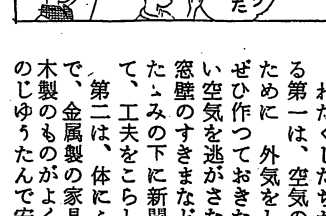 た
わたくしたち
る第一は、空気の
ために 外気をし
ぜひ作つておきた
い空気を逃がさな
窓壁のすきまなど
たゝみの下に新聞
て、工夫をこらし
第二は、体に
で、金属製の家具
木製のものがよく
のじゆうたんで